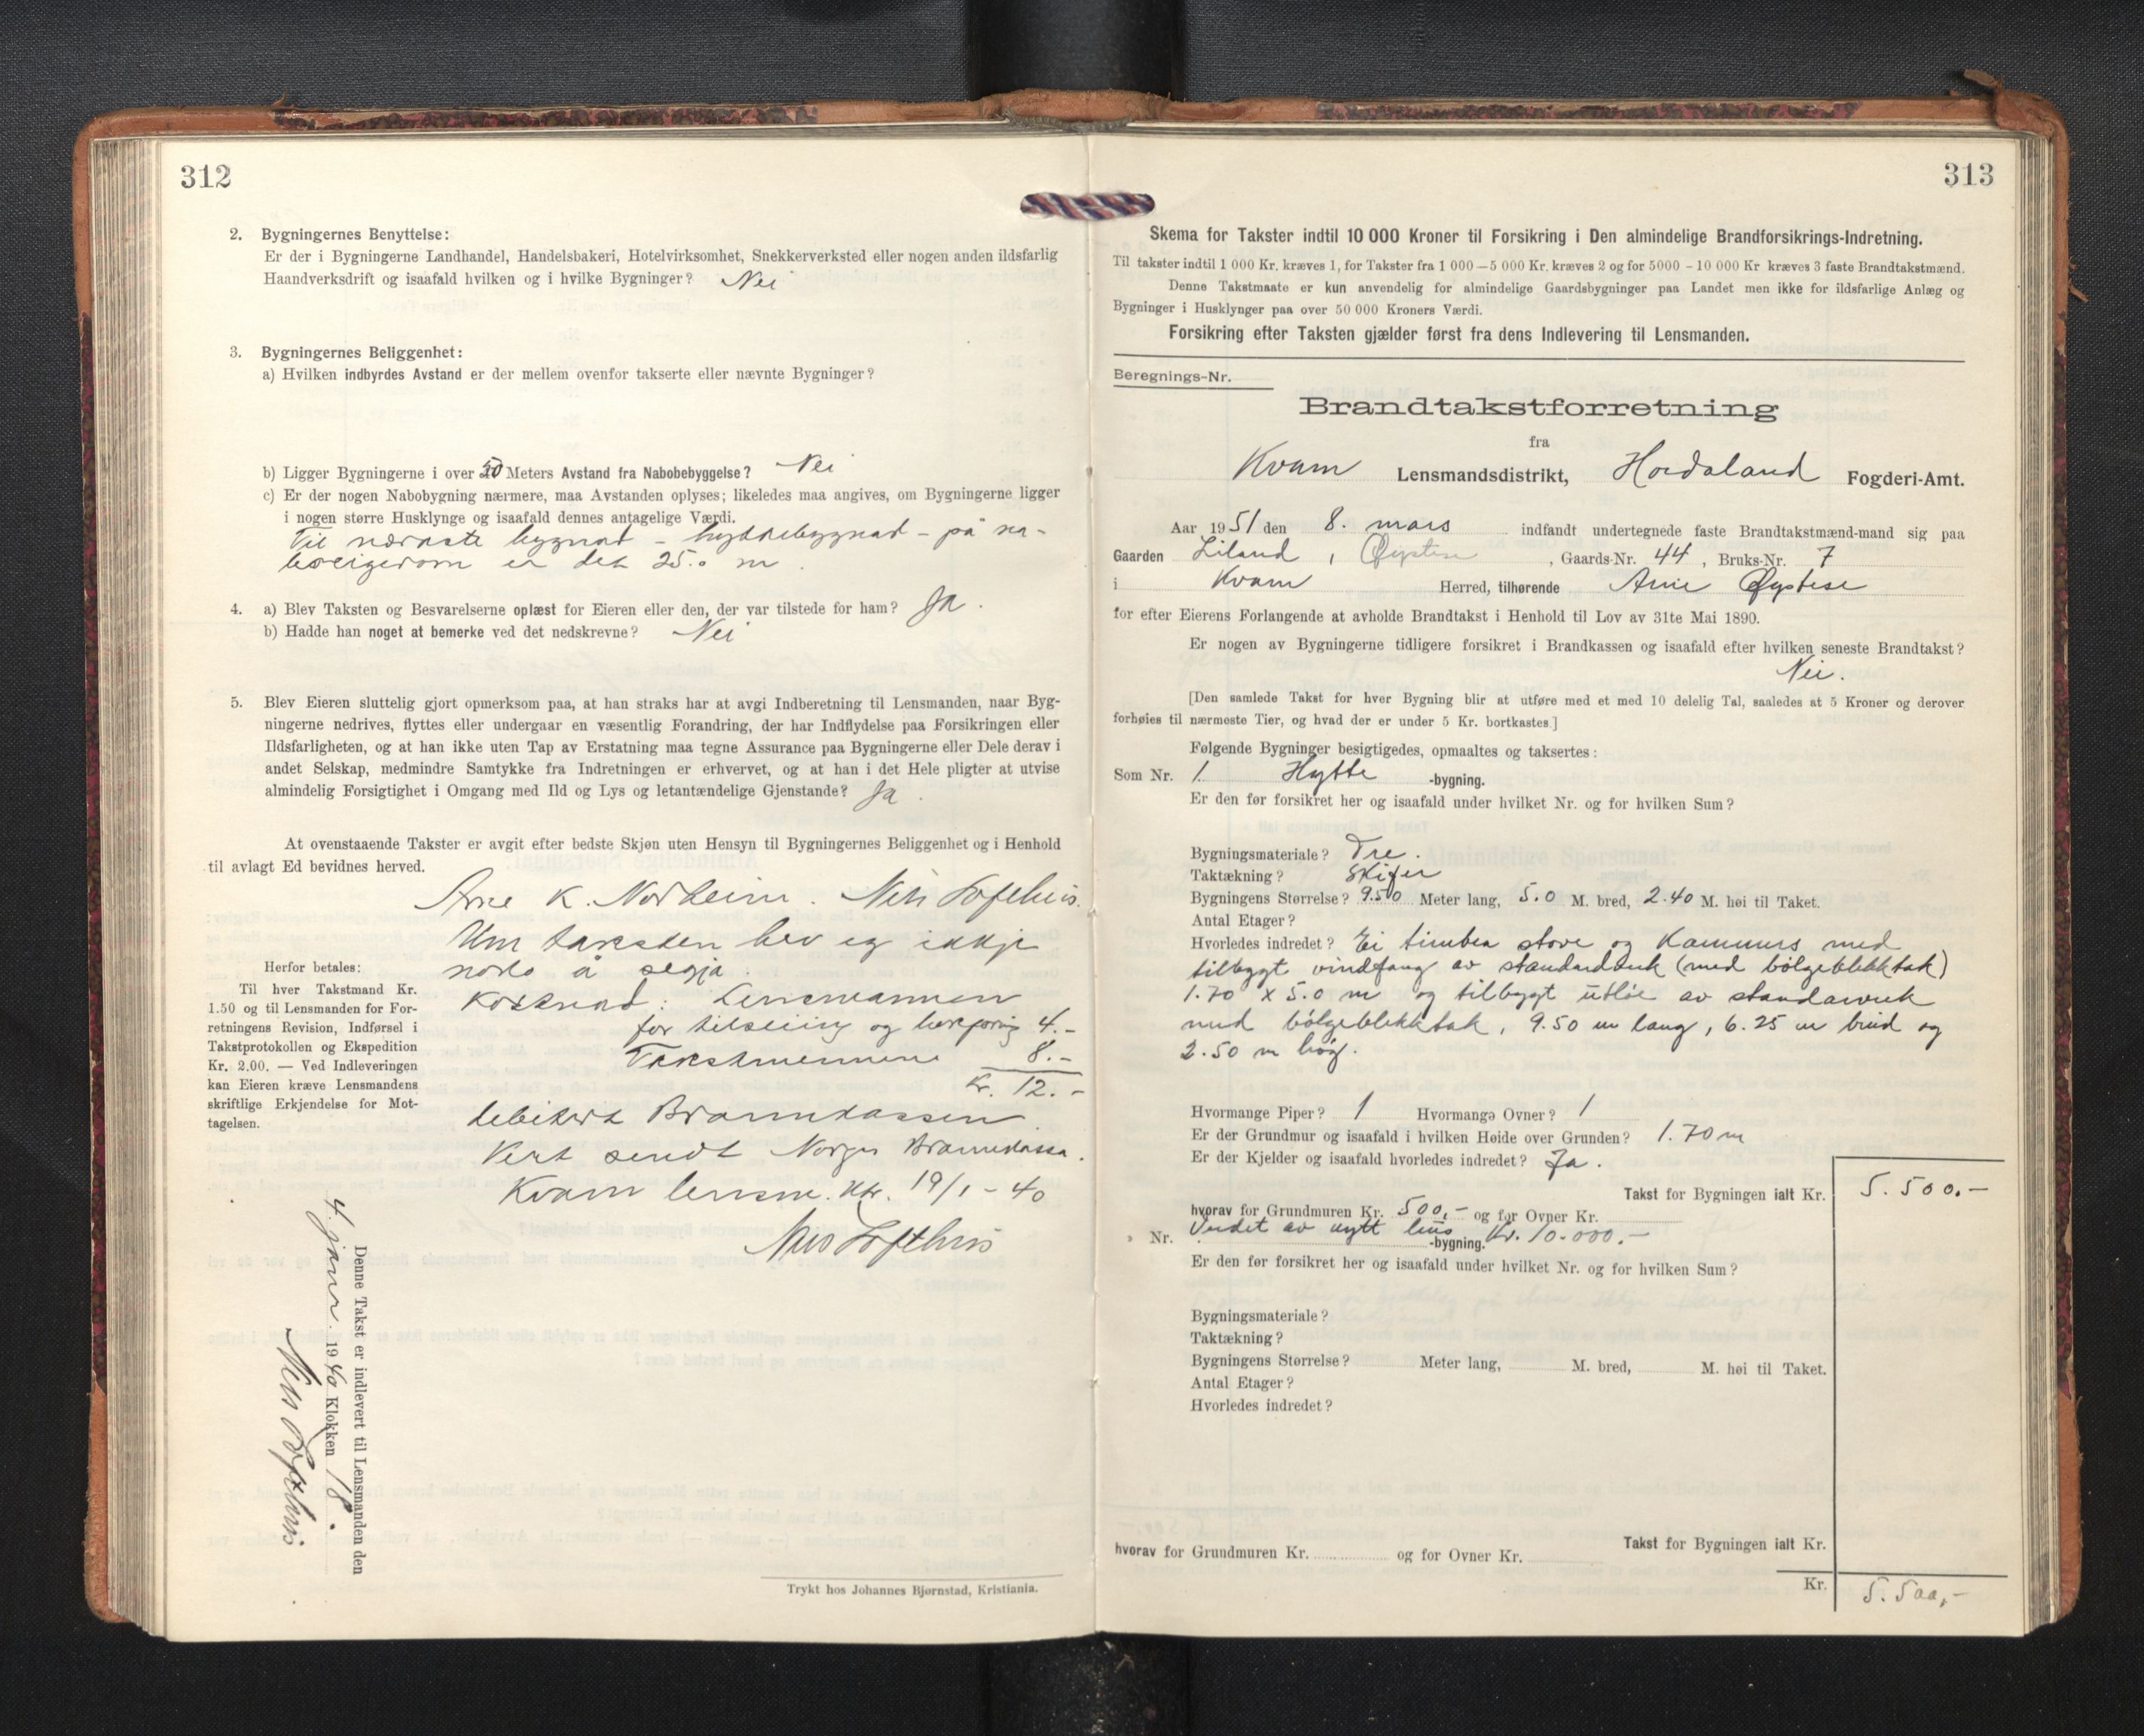 312
2. Bygningernes Benyttelse:
Er der i Bygningerne Landhandel, Handelsbakeri, Hotelvirksomhet, Snekkerverksted eller nogen anden ildsfarlig
Haandverksdrift og isaafald hvilken og i hvilke Bygninger? Nei
3. Bygningernes Beliggenhet:
a) Hvilken indbyrdes Avstand er der mellem ovenfor takserte eller nævnte Bygninger?
b) Ligger Bygningerne i over 50 Meters Avstand fra Nabobebyggelse? Nei
c) Er der nogen Nabobygning nærmere, maa Avstanden oplyses; likeledes maa angives, om Bygningerne ligger
i nogen større Husklynge og isaafald dennes antagelige Værdi.
Til nærmste bygnad - hyttebygnad - på na-
boeigedom er det 25.0 m.
4. a) Blev Taksten og Besvarelserne oplæst for Eieren eller den, der var tilstede for ham? Ja.
b) Hadde han noget at bemerke ved det nedskrevne? Nei
5. Blev Eieren sluttelig gjort opmerksom paa, at han straks har at avgi Indberetning til Lensmanden, naar Byg-
ningerne nedrives, flyttes eller undergaar en væsentlig Forandring, der har Indflydelse paa Forsikringen eller
Ildsfarligheten, og at han ikke uten Tap av Erstatning maa tegne Assurance paa Bygningerne eller Dele derav i
andet Selskap, medmindre Samtykke fra Indretningen er erhvervet, og at han i det Hele pligter at utvise
almindelig Forsigtighet i Omgang med Ild og Lys og letantændelige Gjenstande? Ja.
At ovenstaaende Takster er avgit efter bedste Skjøn uten Hensyn til Bygningernes Beliggenhet og i Henhold
til avlagt Ed bevidnes herved.
Arne K. Nordheim. Nils Lofthus.
Um taksten hev eg ikkje
noko å segja.
Kostnad: Lensmannen
for tilseiing og bokføring 4.-
Takstmennene 8.-
Kr. 12.-
debitert Brannkassen
Vert sendt Norges Brannkassa.
Kvam lensm. ktr. 19/1-40
Nils Lofthus
Herfor betales:
Til hver Takstmand Kr.
1.50 og til Lensmanden for For-
retningens Revision, Indførsel i
Takstprotokollen og Ekspedition
Kr. 2.00. — Ved Indleveringen
kan Eieren kræve Lensmandens
skriftlige Erkjendelse for Mot-
tagelsen.
Denne Takst er indlevert til Lensmanden den
4. janr. 1940 Klokken 18.
Nils Lofthus
Trykt hos Johannes Bjørnstad, Kristiania.
313
Skema for Takster indtil 10 000 Kroner til Forsikring i Den almindelige Brandforsikrings-Indretning.
Til takster indtil 1 000 Kr. kræves 1, for Takster fra 1 000 — 5 000 Kr. kræves 2 og for 5000 - 10 000 Kr kræves 3 faste Brandtakstmænd.
Denne Takstmaate er kun anvendelig for almindelige Gaardsbygninger paa Landet men ikke for ildsfarlige Anlæg og
Bygninger i Husklynger paa over 50 000 Kroners Værdi.
Forsikring efter Taksten gjælder først fra dens Indlevering til Lensmanden.
Beregnings-Nr.
Brandtakstforretning
fra
Kvam Lensmandsdistrikt, Hordaland Fogderi-Amt.
Aar 1951 den 8. mars indfandt undertegnede faste Brandtakstmænd-mand sig paa
Gaarden Liland, Øystese, Gaards-Nr. 44, Bruks-Nr. 7
i Kvam Herred, tilhørende Arne Øystese
for efter Eierens Forlangende at avholde Brandtakst i Henhold til Lov av 31te Mai 1890.
Er nogen av Bygningerne tidligere forsikret i Brandkassen og isaafald efter hvilken seneste Brandtakst?
Nei.
[Den samlede Takst for hver Bygning blir at utføre med et med 10 delelig Tal, saaledes at 5 Kroner og derover
forhøies til nærmeste Tier, og hvad der er under 5 Kr. bortkastes.]
Følgende Bygninger besigtigedes, opmaaltes og taksertes:
Som Nr. 1 Hytte -bygning.
Er den før forsikret her og isaafald under hvilket Nr. og for hvilken Sum?
Bygningsmateriale? Tre.
Taktækning? Skifer
Bygningens Størrelse? 9.50 Meter lang, 5.0 M. bred, 2.40 M. høi til Taket.
Antal Etager?
Hvorledes indredet? Ei timbra stove og kammers med
tilbygt vindfang av standardverk (med bølgeblikktak)
1.70 x 5.0 m og tilbygt utløe av standarverk
med bølgeblikktak, 9.50 m lang, 6.25 m breid og
2.50 m høg.
Hvormange Piper? 1 Hvormange Ovner? 1
Er der Grundmur og isaafald i hvilken Høide over Grunden? 1.70 m
Er der Kjelder og isaafald hvorledes indredet? Ja.
Takst for Bygningen ialt Kr. 5.500.-
hvorav for Grundmuren Kr. 500,- og for Ovner Kr.
Verdet av nytt hus Kr. 10.000.-
Nr. -bygning.
Er den før forsikret her og isaafald under hvilket Nr. og for hvilken Sum?
Bygningsmateriale?
Taktækning?
Bygningens Størrelse? Meter lang, M. bred, M. høi til Taket.
Antal Etager?
Hvorledes indredet?
Takst for Bygningen ialt Kr.
hvorav for Grundmuren Kr. og for Ovner Kr.
Kr. 5.500,-